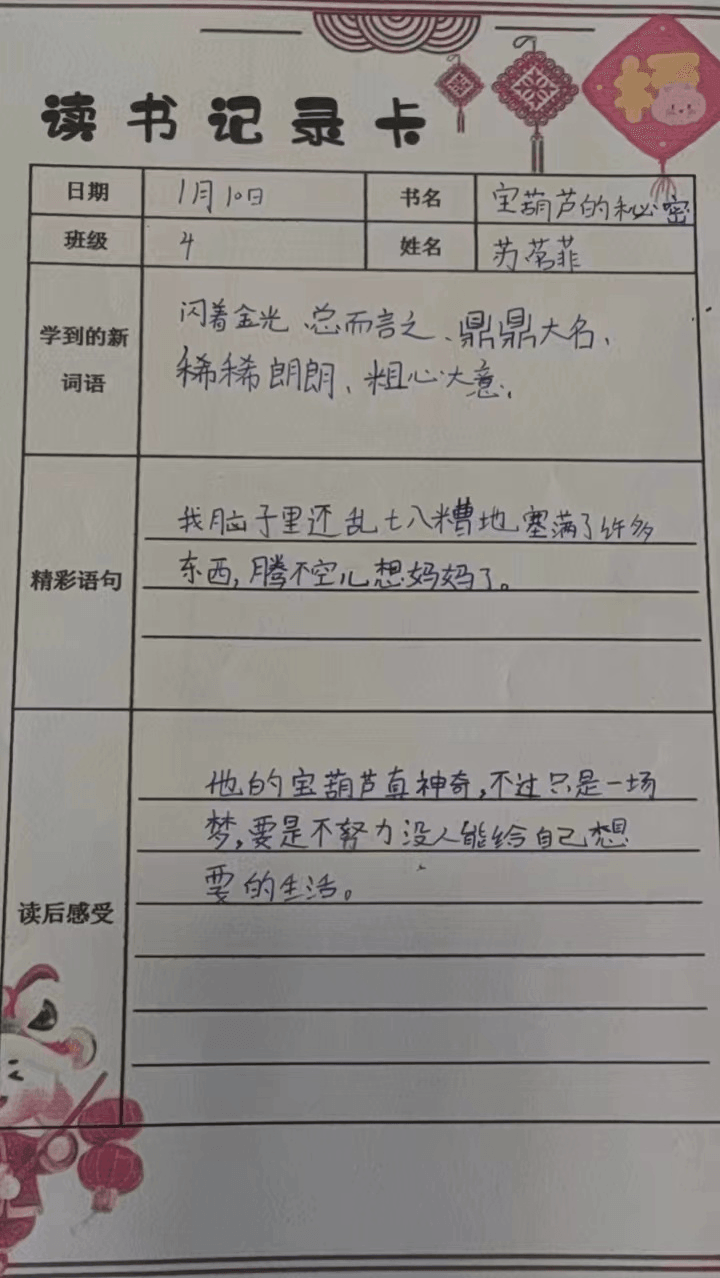 读书记录卡
日期 1月10日 书名 宝葫芦的秘密
班级 4 姓名 苏茗菲
学到的新
词语
闪着金光、总而言之、鼎鼎大名、
稀稀朗朗、粗心大意、
精彩语句
我脑子里还乱七八糟地塞满了许多
东西,腾不空儿想妈妈了。
读后感受
他的宝葫芦真神奇,不过只是一场
梦,要是不努力没人能给自己想
要的生活。